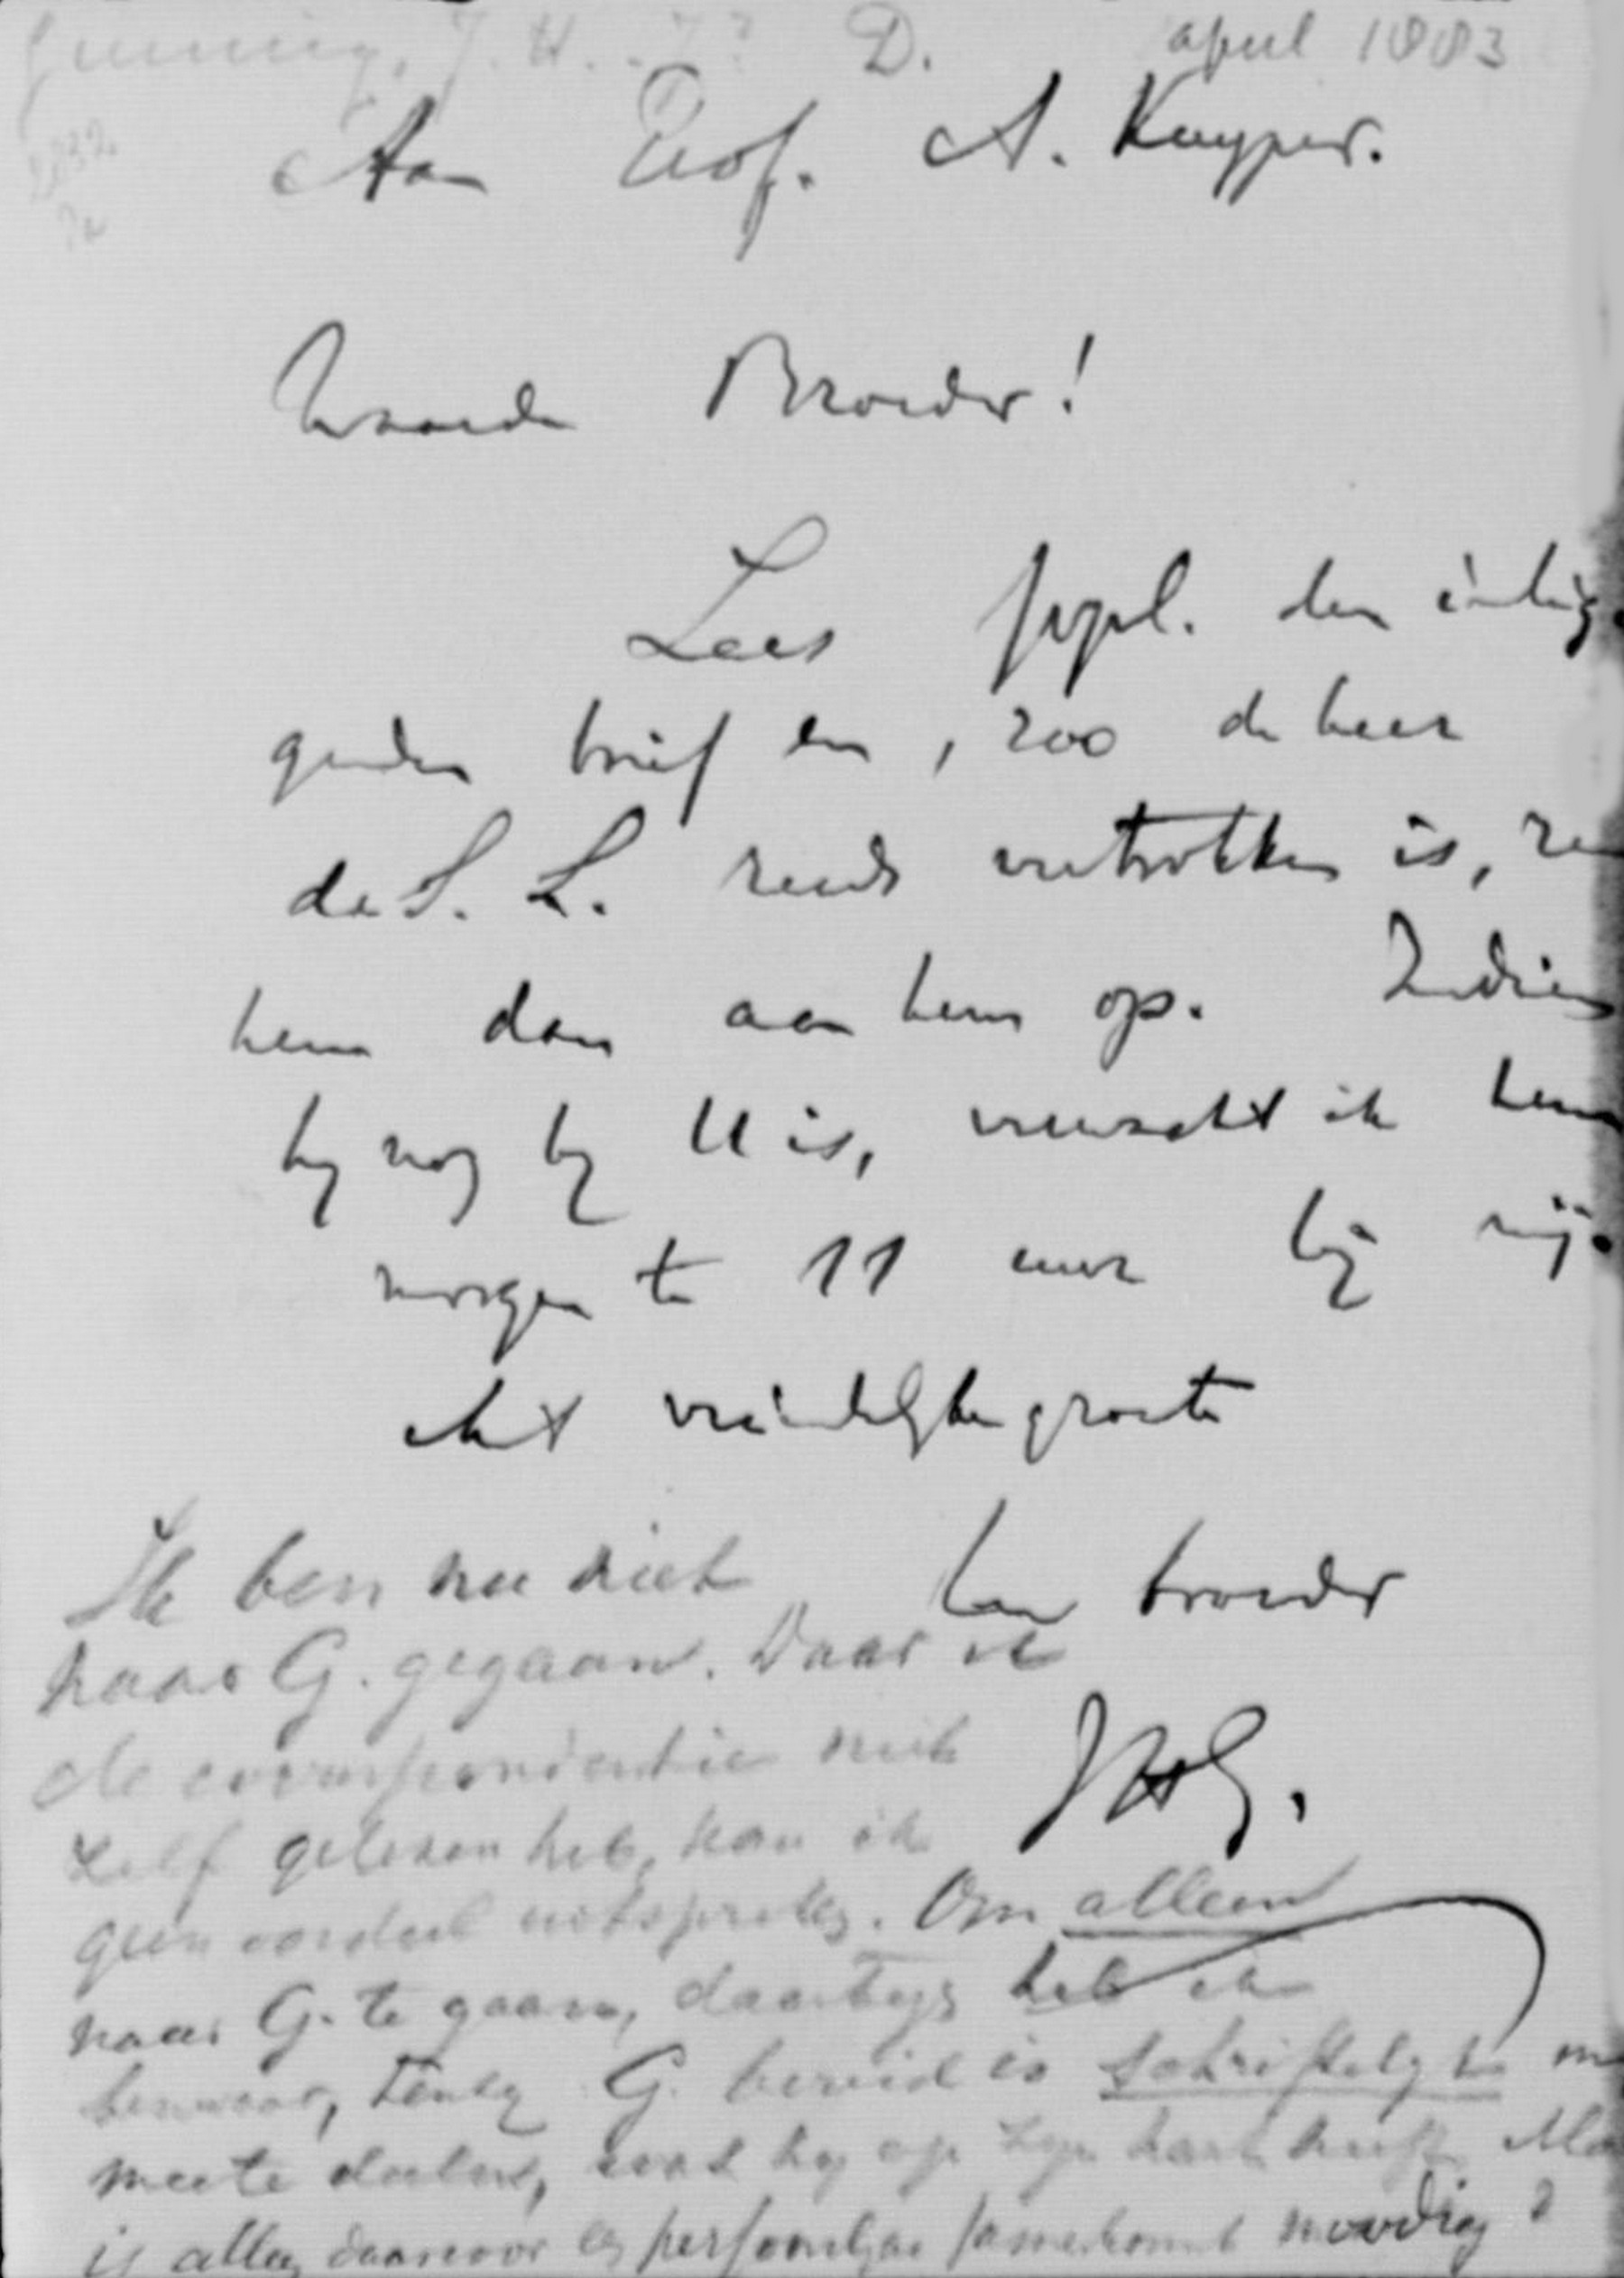 Gunning, J. H. J? D. april 1883
2832
Aan Prof. A. Kuyper.
Waarde Broeder!
Lees svpl. den inlig
genden brief en, zoo de heer
de S. L. reeds vertrokken is, ze
hem dan aan hem op. Indien
hy nog by U is, verwacht ik hem
morgen te 11 uur bij mij.
Met vriendelyke groete
Uw broeder
JHG.
Ik ben nu niet
naar G. gegaan. Daar ik
de correspondentie niet
zelf gelezen heb, kan ik
geen oordeel uitspreken. Om alleen
naar G. te gaan, daartegen heb ik
bezwaar, tenzy G. bereid is schriftelyk m
mee te deelen, wat hy op zyn hart heeft. Ma
is alleen daarvoor een persoonlyke samenkomst noodig?